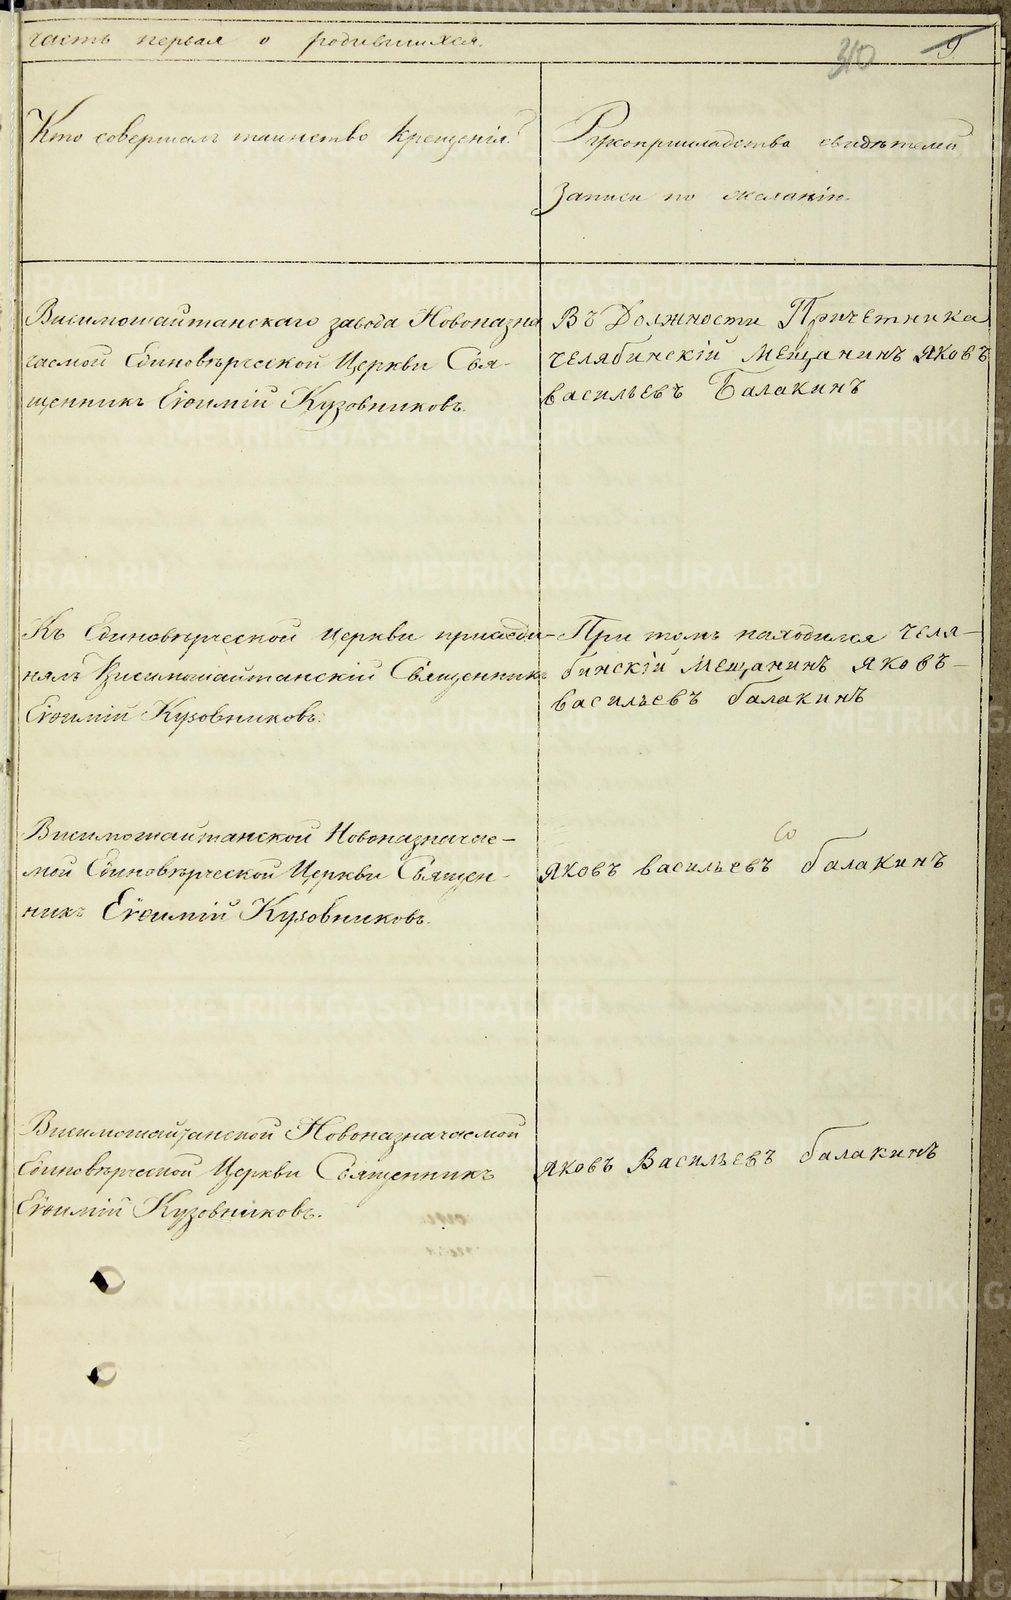 часть первая о родившихся.
310 9.
Кто совершалъ таинство крещенія?
Рукоприкладства свидѣтелей
Записи по желанію.
Висимошайтанскаго завода Новоназна
чаемой Единовѣрческой Церкви Свя-
щенникъ Евѳимій Кузовниковъ.
Въ Должности Причетника
челябинскій Мещанинъ яковъ
васильевъ Балакинъ
Къ Единовѣрческой Церкви присоеди-
нялъ Висимошайтанскій Священникъ
Евѳимій Кузовниковъ.
При томъ находился челя-
бинскій Мещанинъ яковъ-
васильевъ балакинъ
Висимошайтанской Новоназначае-
мой Единовѣрческой Церкви Священ-
никъ Евѳимій Кузовниковъ.
яковъ васильевъ балакинъ
Висимошайтанской Новоназначаемой
Единовѣрческой Церкви Священникъ
Евѳимій Кузовниковъ.
яковъ Васильевъ балакинъ
METRIKI.GASO-URAL.RU